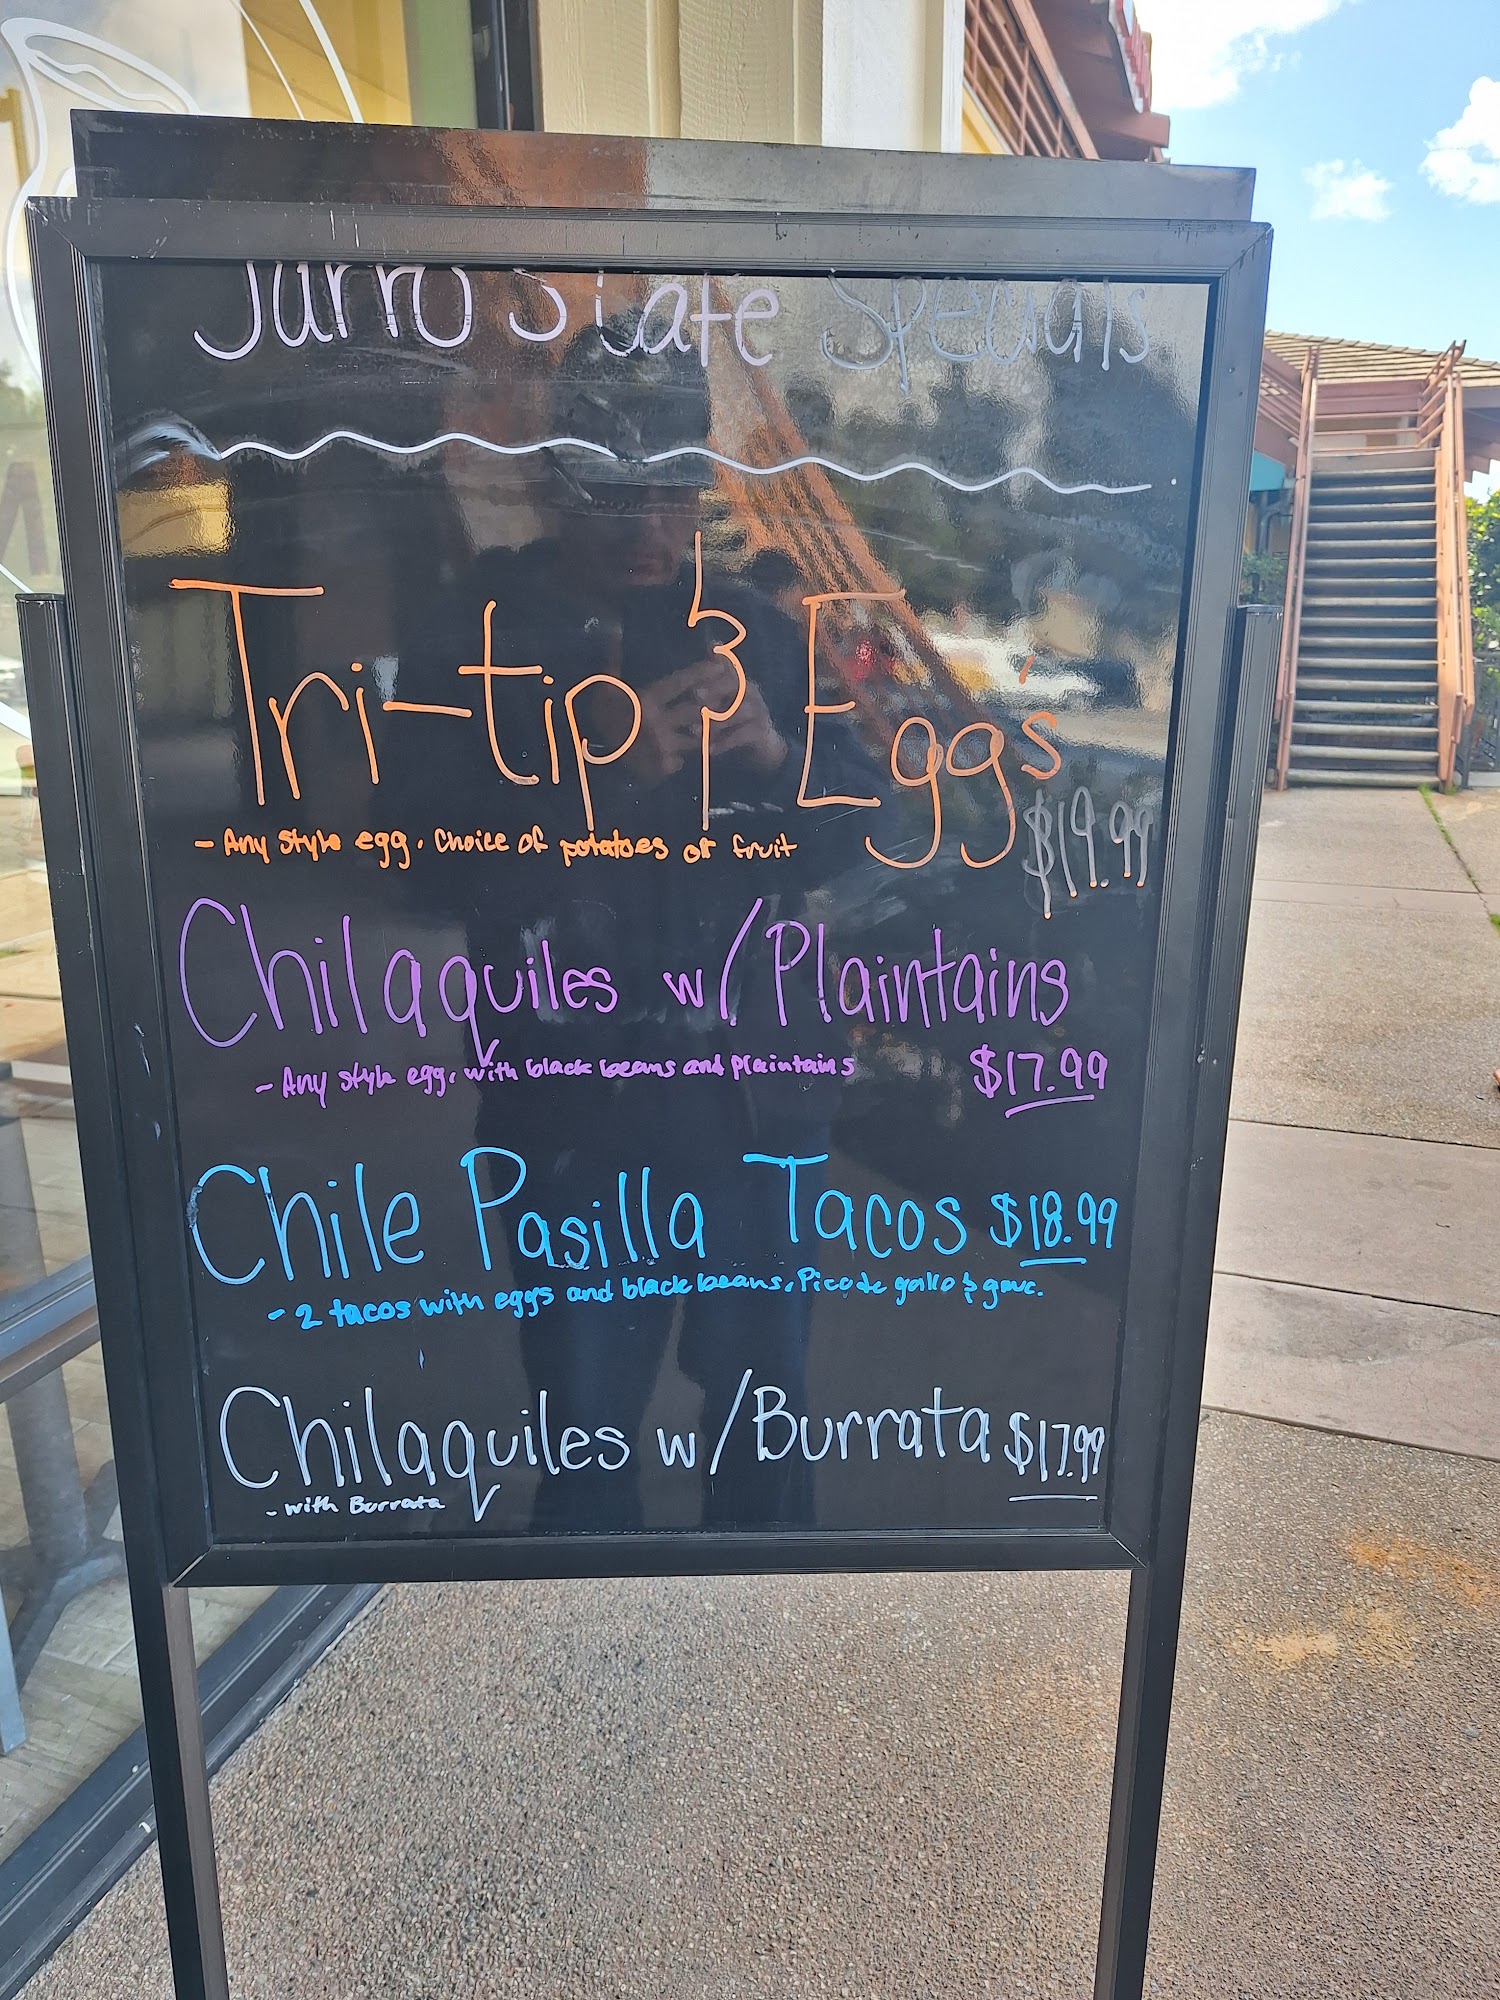 Jarro's Cafe Specials
Tri-tip & Egg's
$19.99
- Any style egg. Choice of potatoes or fruit
Chilaquiles w/Plaintains
- Any style egg, with black beans and plaintains $17.99
Chile Pasilla Tacos $18.99
- 2 tacos with eggs and black beans, Pico de gallo & guac.
Chilaquiles w/Burrata $17.99
- with Burrata